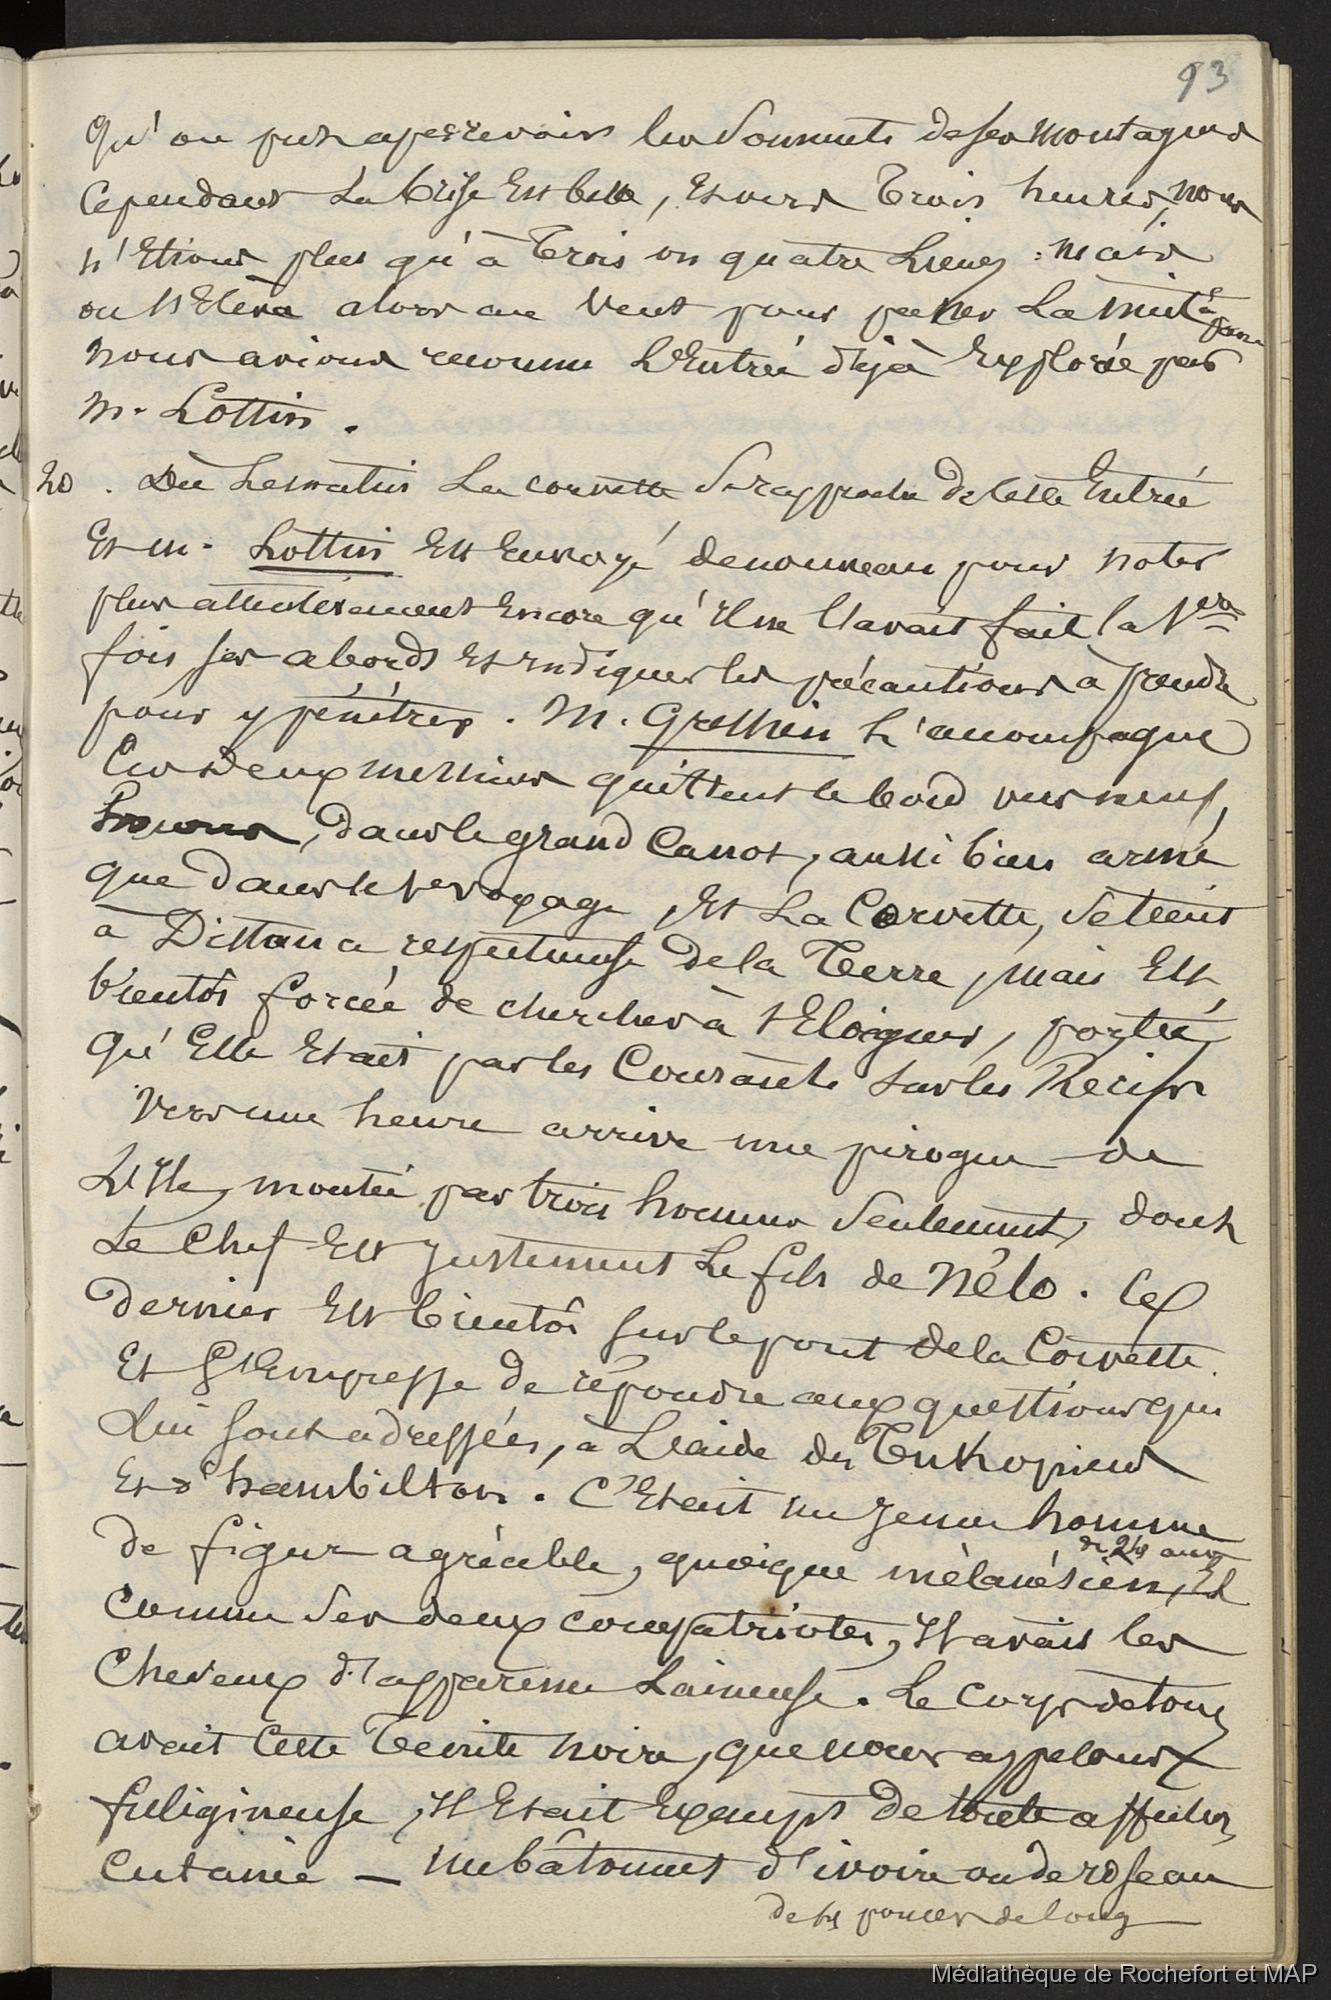 93
qu'on put apercevoir les Sommets de ses montagnes
Cependant La brise Est belle, Et vers Trois heures, nous
n'Etions plus qu'à Trois ou quatre Lieues : mais
on s'Eleva alors au Vent pour passer La nuit,
nous avions reconnu L'Entrée déjà Explorée par
M. Lottin.
20. Dès Le matin La corvette Se rapproche de cette Entrée
Et m. Lottin Est Envoyé de nouveau pour noter
plus attentivement Encore qu'Il ne l'avait fait la 1ere
fois ses abords Et Indiquer les précautions à prendre
pour y pénétrer. M. Gressien L'accompagne
Ces deux messieurs quittent le bord vers neuf
heures, dans le grand Canot, aussi bien armé
que dans le 1er voyage, Et La Corvette, Se tient
à Distance respectueuse De la Terre, mais Est
bientôt forcée de chercher à s'Eloigner, portée
qu'Elle Etait par les Courants Sur les Récifs
Vers une heure arrive une pirogue de
L'Ile, montée par trois hommes Seulement, dont
Le Chef Est Justement Le fils de Nélo. Ce
dernier Est bientôt sur le pont de la Corvette
Et s'Empresse de répondre aux questions qui
Lui sont adressées, à L'aide des Tukopiens
Et d'hambilton. C'Etait un Jeune homme
de 24 ans
de figure agréable, quoique mélanésien, Et
Comme Ses deux compatriotes, Il avait les
Cheveux d'apparence Laineuse. Le Corps de tous
avait Cette Teinte noire, que nous appelons
fuligineuse, Il Etait Exempt De toute affection
Cutanée — un bâtonnet d'ivoire ou de roseau
de pouces de long
Médiathèque de Rochefort et MAP